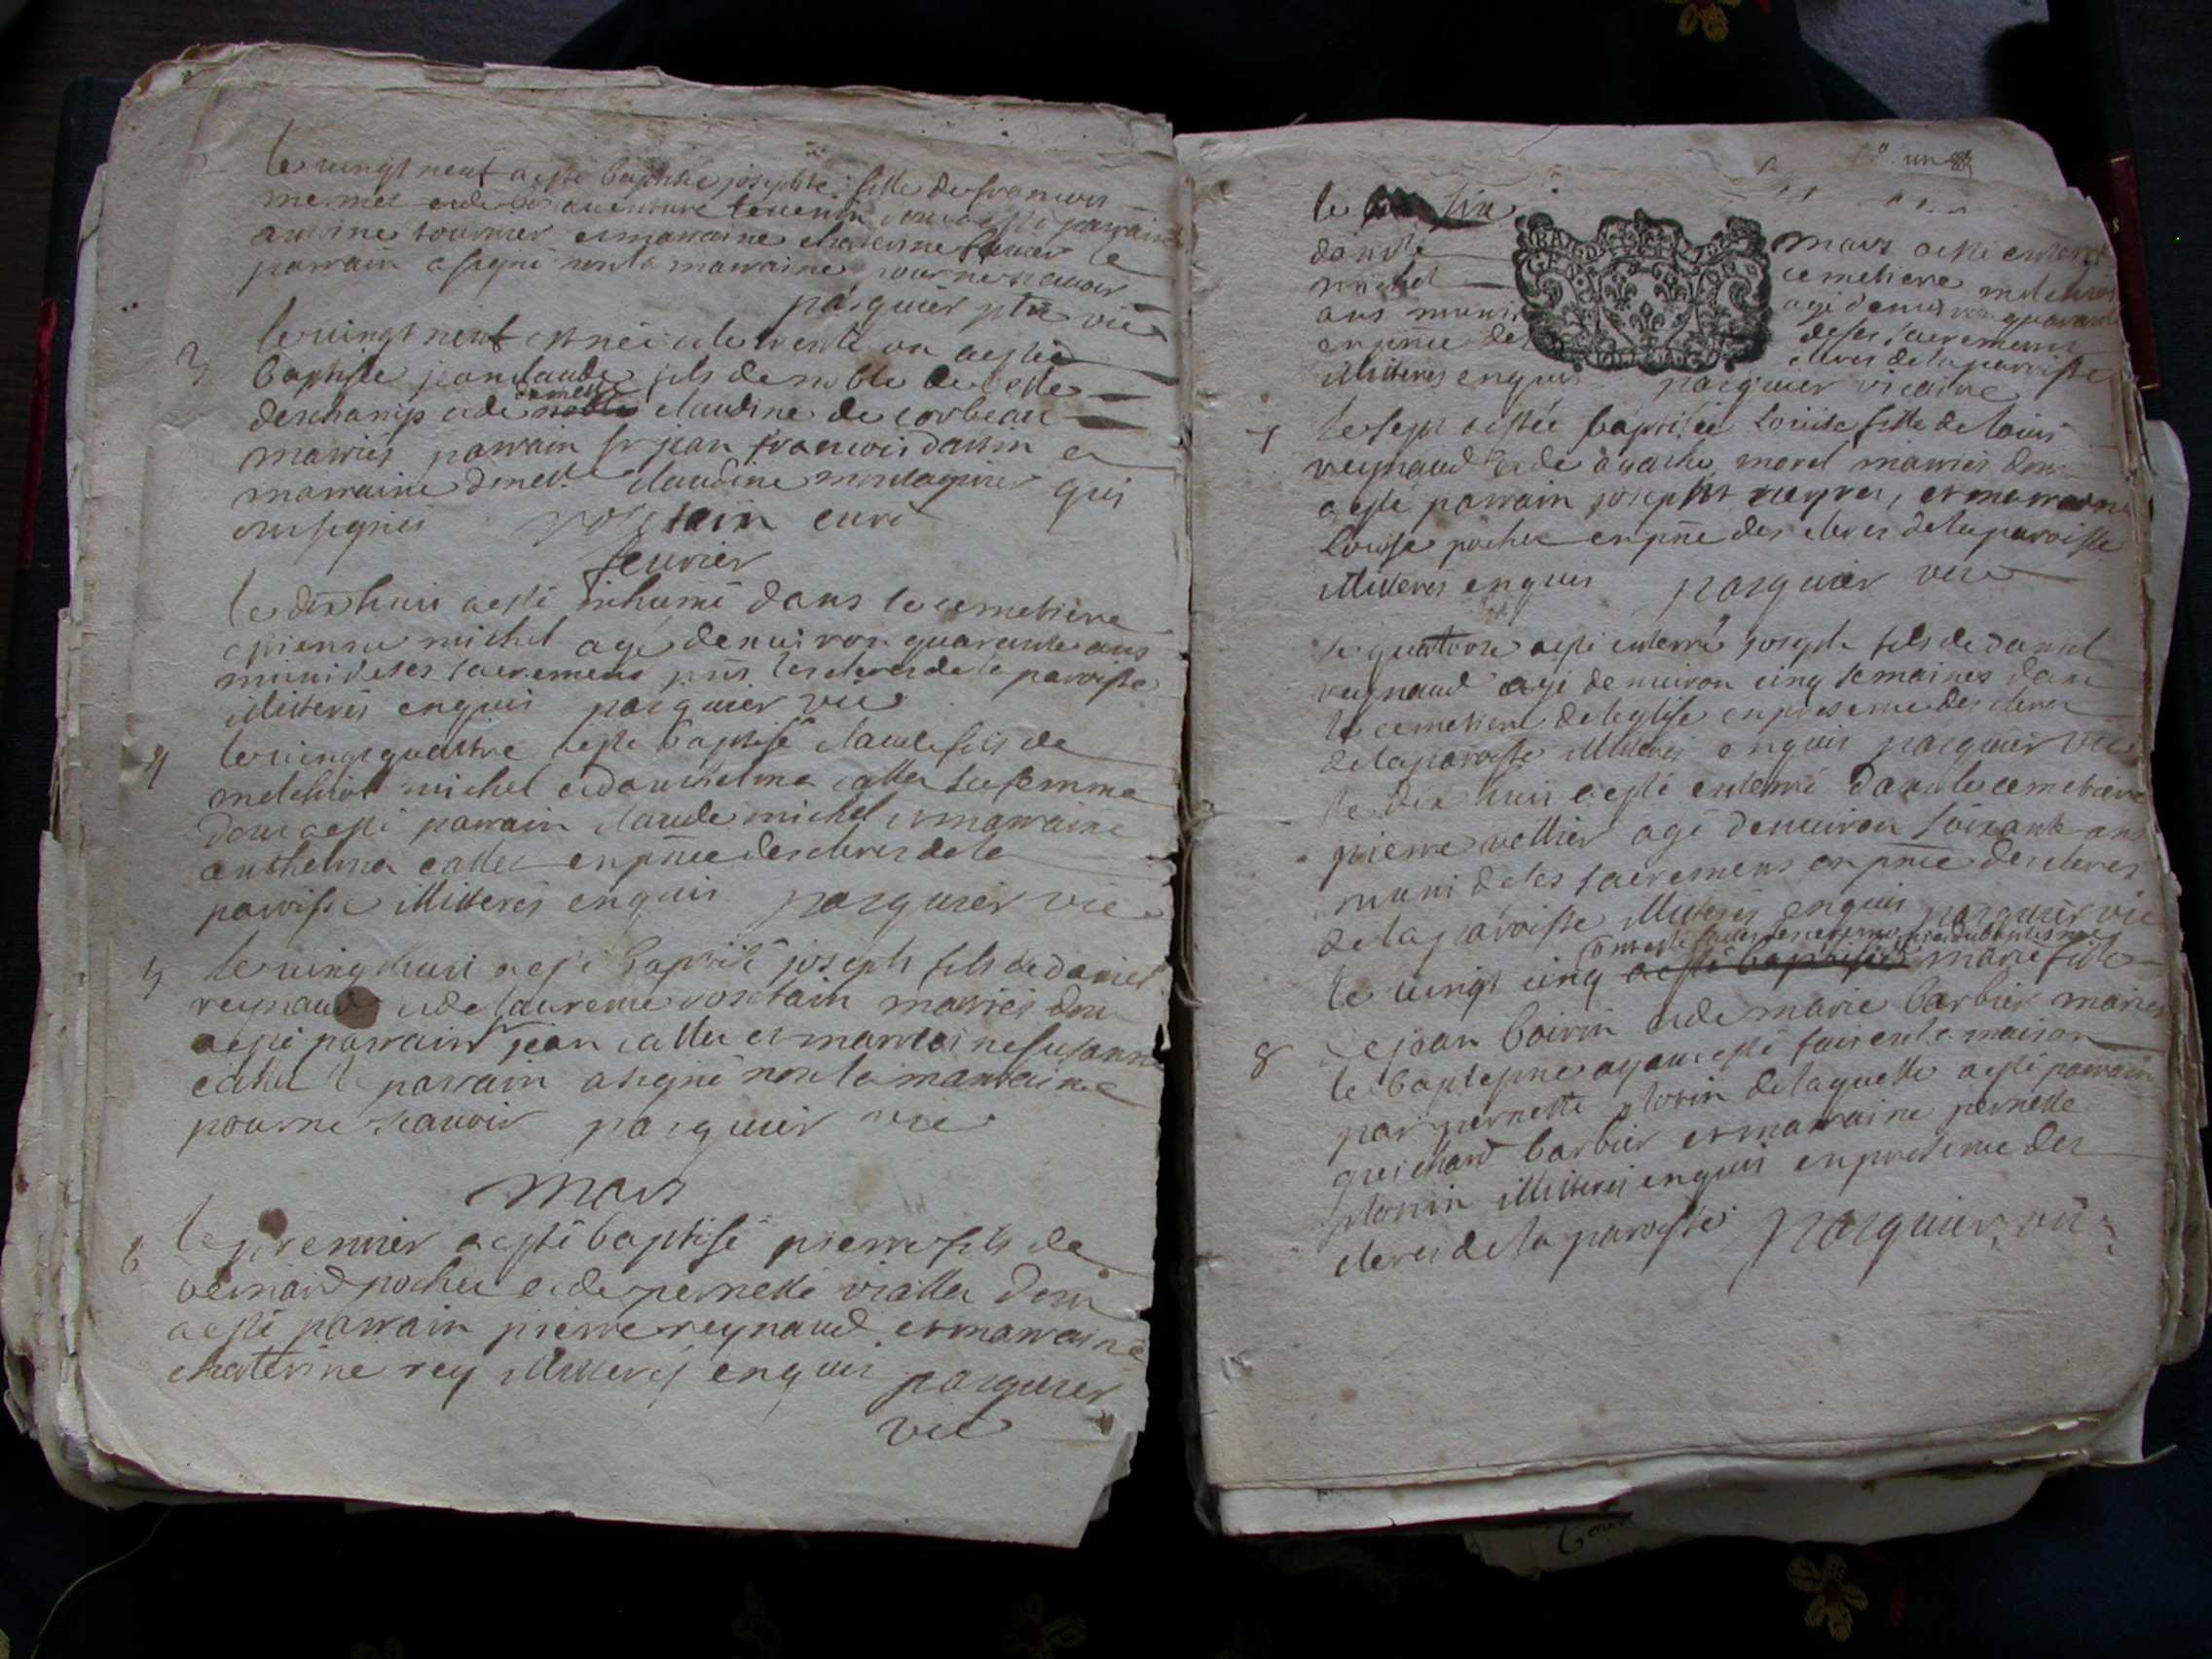 le vingt neuf a esté baptisé josephte fille de francois
mermet et de bonaventure tevenin dont a esté parrain
antoine tournier et marraine chaterine le
parrain a signé non la marraine pour ne scavoir
pasquier ptre vic
3 le vingt neuf est né et le trente un a esté
baptisé jean claude fils de noble de
deschamps et de demelle claudine de corbeau
mariés parrain sr jean francois dausin et
marraine demelle claudine montagnier qui
ont signés rostain curé
fevrier
le dix huit a esté inhumé dans le cemetiere
pierre michel agé denuiron quarante ans
muni de ses sacremens pnts les clercs de la paroisse
illitterés enquis pasquier vic
4 le vingt quattre a esté baptisé claude fils de
melchiot michel et danthelma callet sa femme
dont a esté parrain claude michel et marraine
anthelma callet en pnce des clercs de la
paroisse illitterés enquis pasquier vic
5 le vingt huit a esté baptisé joseph fils de daniel
reynaud et de laurence rostain mariés dont
a esté parrain sr jean callet et marraine susanne
callet le parrain a signé non la marraine
pour ne scavoir pasquier vic
Mars
6 le premier a esté baptisé pierre fils de
bernard pochet et de pernette viallet dont
a esté parrain pierre reynaud et marraine
chaterine rey illitterés enquis pasquier
vic
un
le six mars a esté enterré
dans le cemetiere melchiot
michel agé denuiron quarante
ans muni de ses sacremens
en pnce des clercs de la paroisse
illitterés enquis pasquier vicaire
7 le sept a estée baptisée Louise fille de louis
reynaud et de agathe morel mariés dont
a esté parrain joseph reyne, et marraine
Louise pochet en pnce des clercs de la paroisse
illitterés enquis pasquier vic
le quattorze a esté enterré joseph fils de daniel
reynaud agé denuiron cinq semaines dans
le cemetiere de leglise en presence des clercs
de la paroisse illitterés enquis pasquier vic
le dix huit a esté enterré dans le cemetiere
pierre vollier agé denuiron soixante ans
muni de ses sacremens en pnce des clercs
de la paroisse illitterés enquis pasquier vic
ont esté faites les ceremonies du baptisme
le vingt cinq a esté baptisée marie fille
8 de jean boirin et de marie barbier mariés
le baptesme ayant esté fait en la maison
par pernette plonin de laquelle a esté parrain
guichard barbier et marraine pernette
plonin illitterés enquis en presence des
clercs de la paroisse pasquier vic